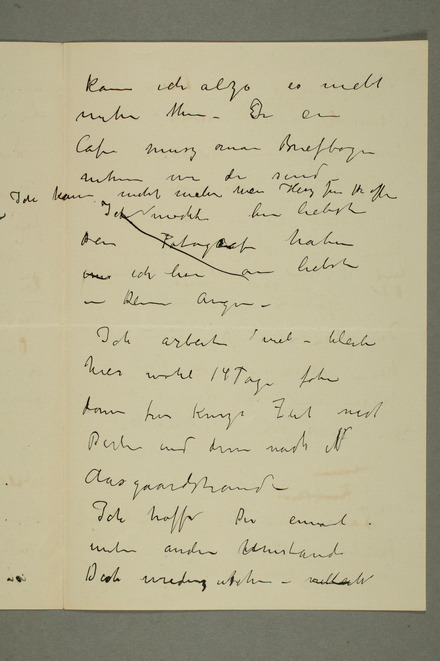 kann ich also es nicht
mehr thun – In ein
Cafe musz man Briefbogen
nehmen wie die sind –
Ich kann nicht mehr
Ich möchte am liebst
Dein Fotograf haben
ich bin am liebst
in Deine Augen –
Ich arbeite viel – bleibe
hier wohl 14 Tage fahre
dann für kurze Zeit nach
Berlin und dann nach
Aasgaardstrande
Ich hoffe Die einmal
unter andere Umstande
Dich wieder sehen – vielleicht